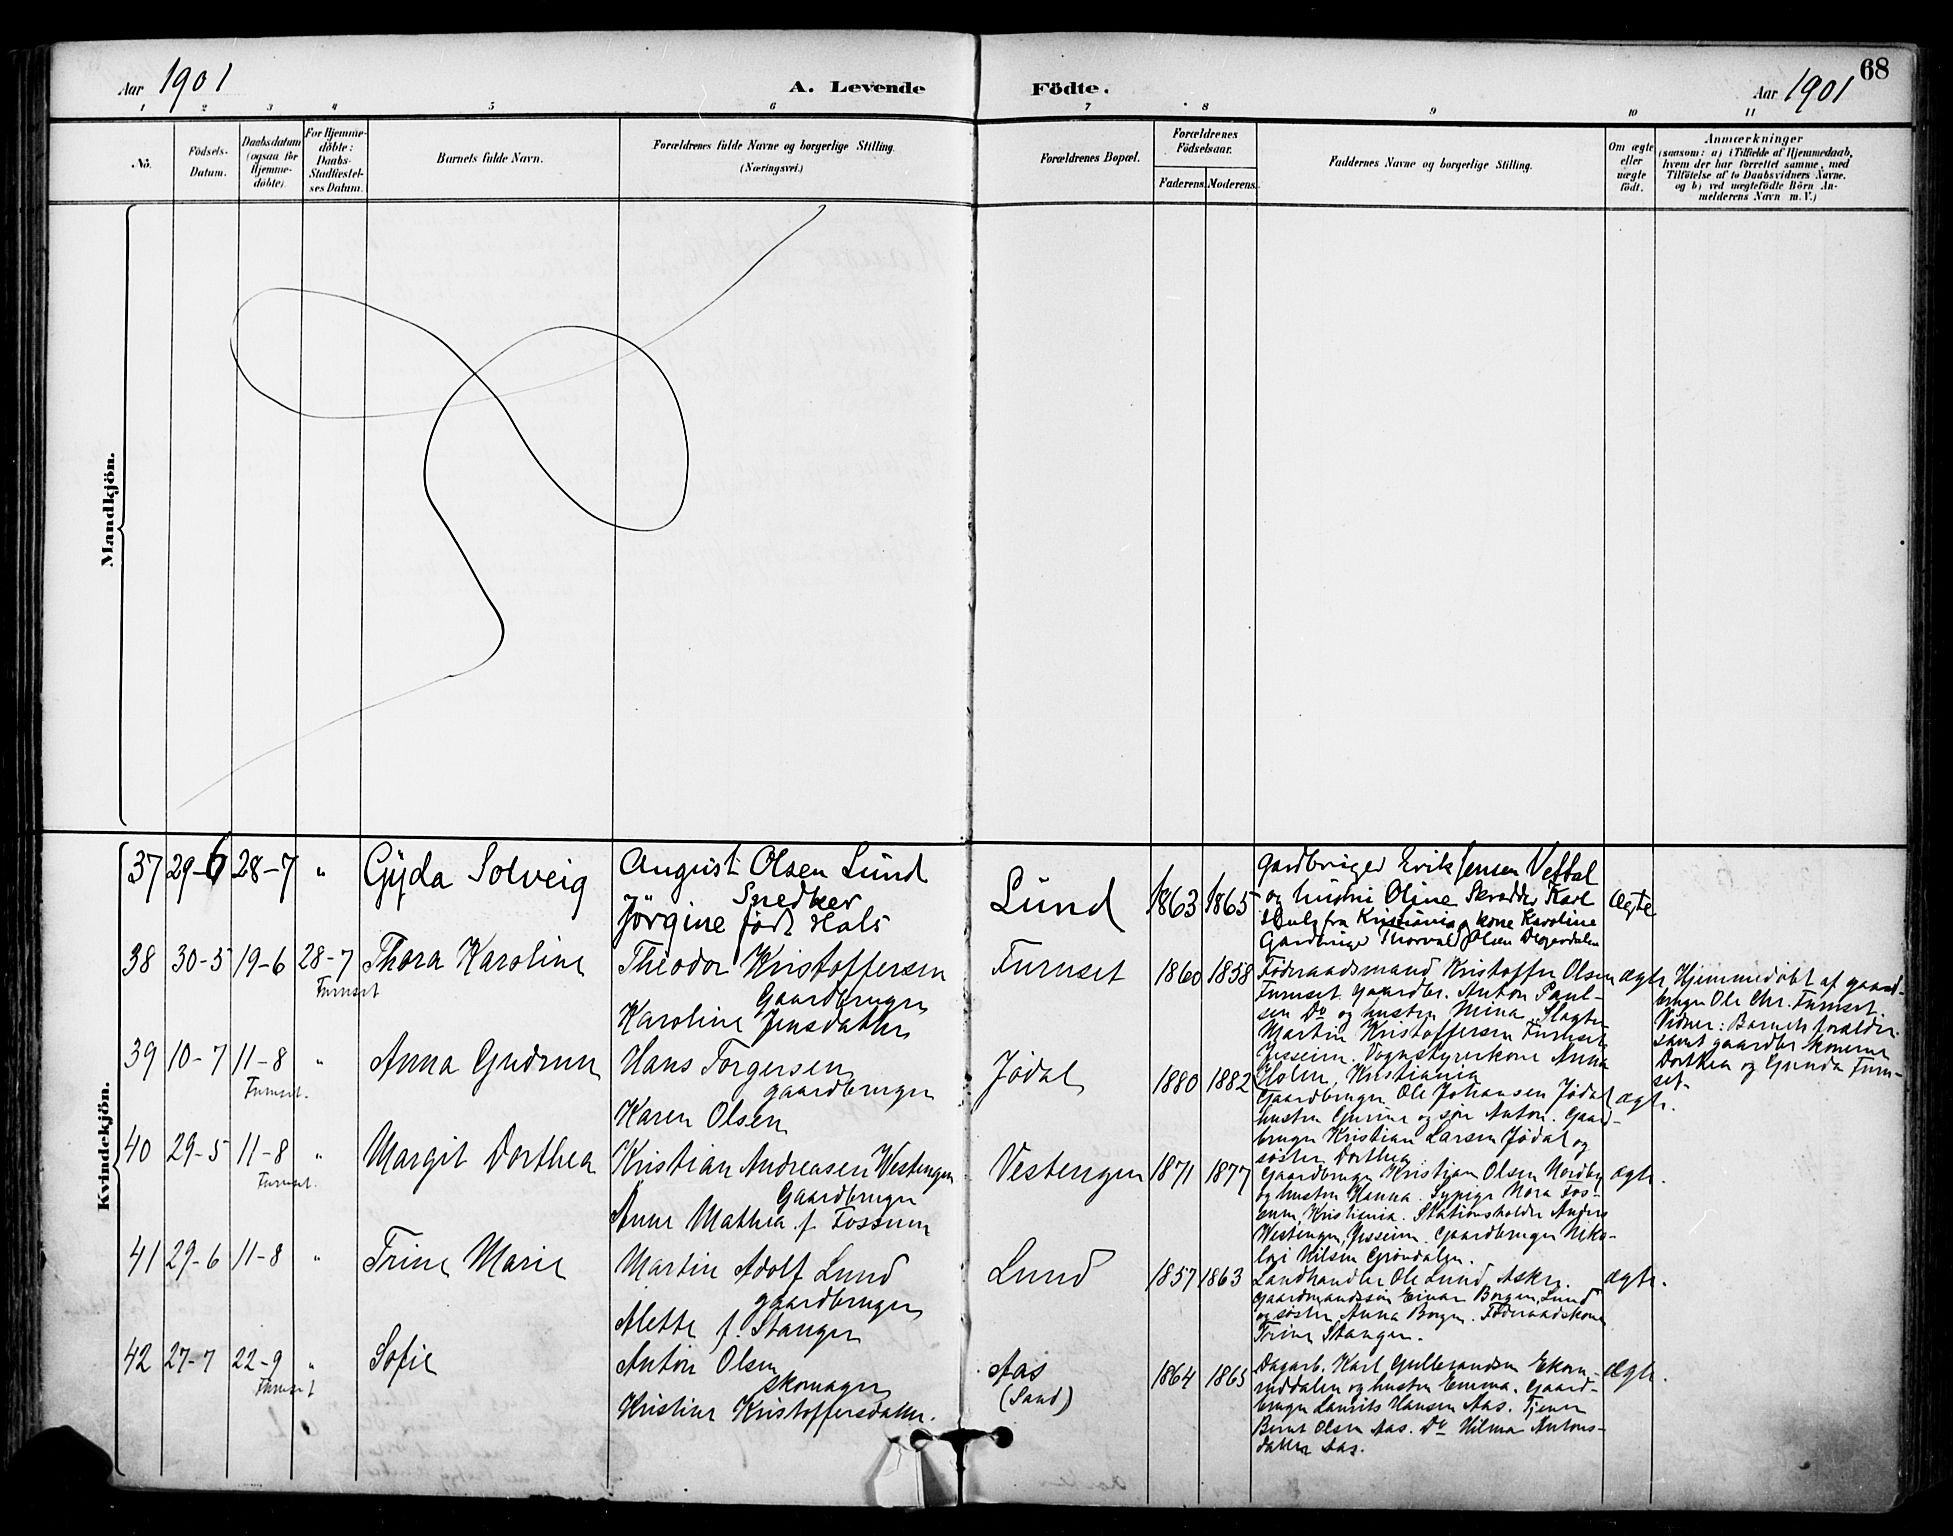 Aar 1901
A. Levende Födte.
Aar 1901
68
1 2 3 4 5 6 7 8 9 10 11
No.
Födsels-Datum.
Daabsdatum (ogsaa for Hjemme-döbte).
For Hjemme-döbte: Daabs-Stadfæstel-ses Datum.
Barnets fulde Navn.
Forældrenes fulde Navne og borgerlige Stilling. (Næringsvei.)
Forældrenes Bopæl.
Forældrenes Födselsaar.
Faderens. Moderens.
Faddernes Navne og borgerlige Stilling.
Om ægte eller uægte födt.
Anmærkninger
(saasom: a) i Tilfælde af Hjemmedaab,
hvem der har forrettet samme, med
Tilföielse af to Daabsvidners Navne.
og b) ved uægtefödte Börn An-
melderens Navn m. V.)
Mandkjön.
Kvindekjön.
37 29-6 28-7 " Gyda Solveig
August Olsen Lund
Snedker
Jørgine født Hals
Lund 1863 1865
Gardbruger Erik Jensen Vestal
og hustru Oline Skrædder Karl
fra Kristiania, kone Karoline
Gardbruger Thorvald Olsen
ægte
38 30-5 19-6 28-7 Thora Karoline
Furuset
Theodor Kristoffersen
Gaardbruger
Karoline Jensdatter
Furuset 1860 1858
Føderaadsmand Kristoffer Olsen
Furuset Gaardbr. Anton Paul-
sen Do og hustru Mina. Slagter
Martin Kristoffersen Furuset
Jesseim. Vognstyrerkone Anna
Holm, Kristiania
ægte
Hjemmedøbt af gaard-
bruger Ole Chr. Furuset.
Vidner: Barnets forældre
samt gaardbr. konerne
Dorthea og Gunda Furu-
set.
39 10-7 11-8 " Anna Gudrun
Furuset.
Hans Torgersen
gaardbruger
Karen Olsen
Jødal 1880 1882
Gaardbruger Ole Johansen Jødal
hustru Gurine og søn Anton. Gaard-
bruger Kristian Larsen Jødal og
søster Dorthea
ægte.
40 29-5 11-8 " Margit Dorthea
Furuset.
Kristian Andreasen Westengen
Gaardbruger
Anne Mathea f. Fossum
Vestengen 1871 1877
Gaardbruger Kristian Olsen Nordby
og hustru Hanna. Sypige Nora Fos-
sum, Kristiania. Stationsholder Anders
Westengen, Jesseim. Gaardbruger Niko-
lai Nilsen Grøndalen.
ægte.
41 29-6 11-8 " Trine Marie
Martin Adolf Lund
gaardbruger
Alette f. Stangen
Lund 1857 1863
Landhandler Ole Lund, Askr.
Gaardmandssøn Einar Borgen, Lund
og søster Anna Borgen. Føderaadskone
Trine Stangen.
ægte.
42 27-7 22-9 " Sofie
Furuset
Anton Olsen
skomager
Kristine Kristoffersdatter.
Aas
(Sand)
1864 1865
Dagarb. Karl Gulbrandsen Ekorn-
ruddalen og hustru Emma. Gaard-
bruger Laurits Hansen Aas. Tjener
Bernt Olsen Aas. Do Hilma Antons-
datter Aas.
ægte.